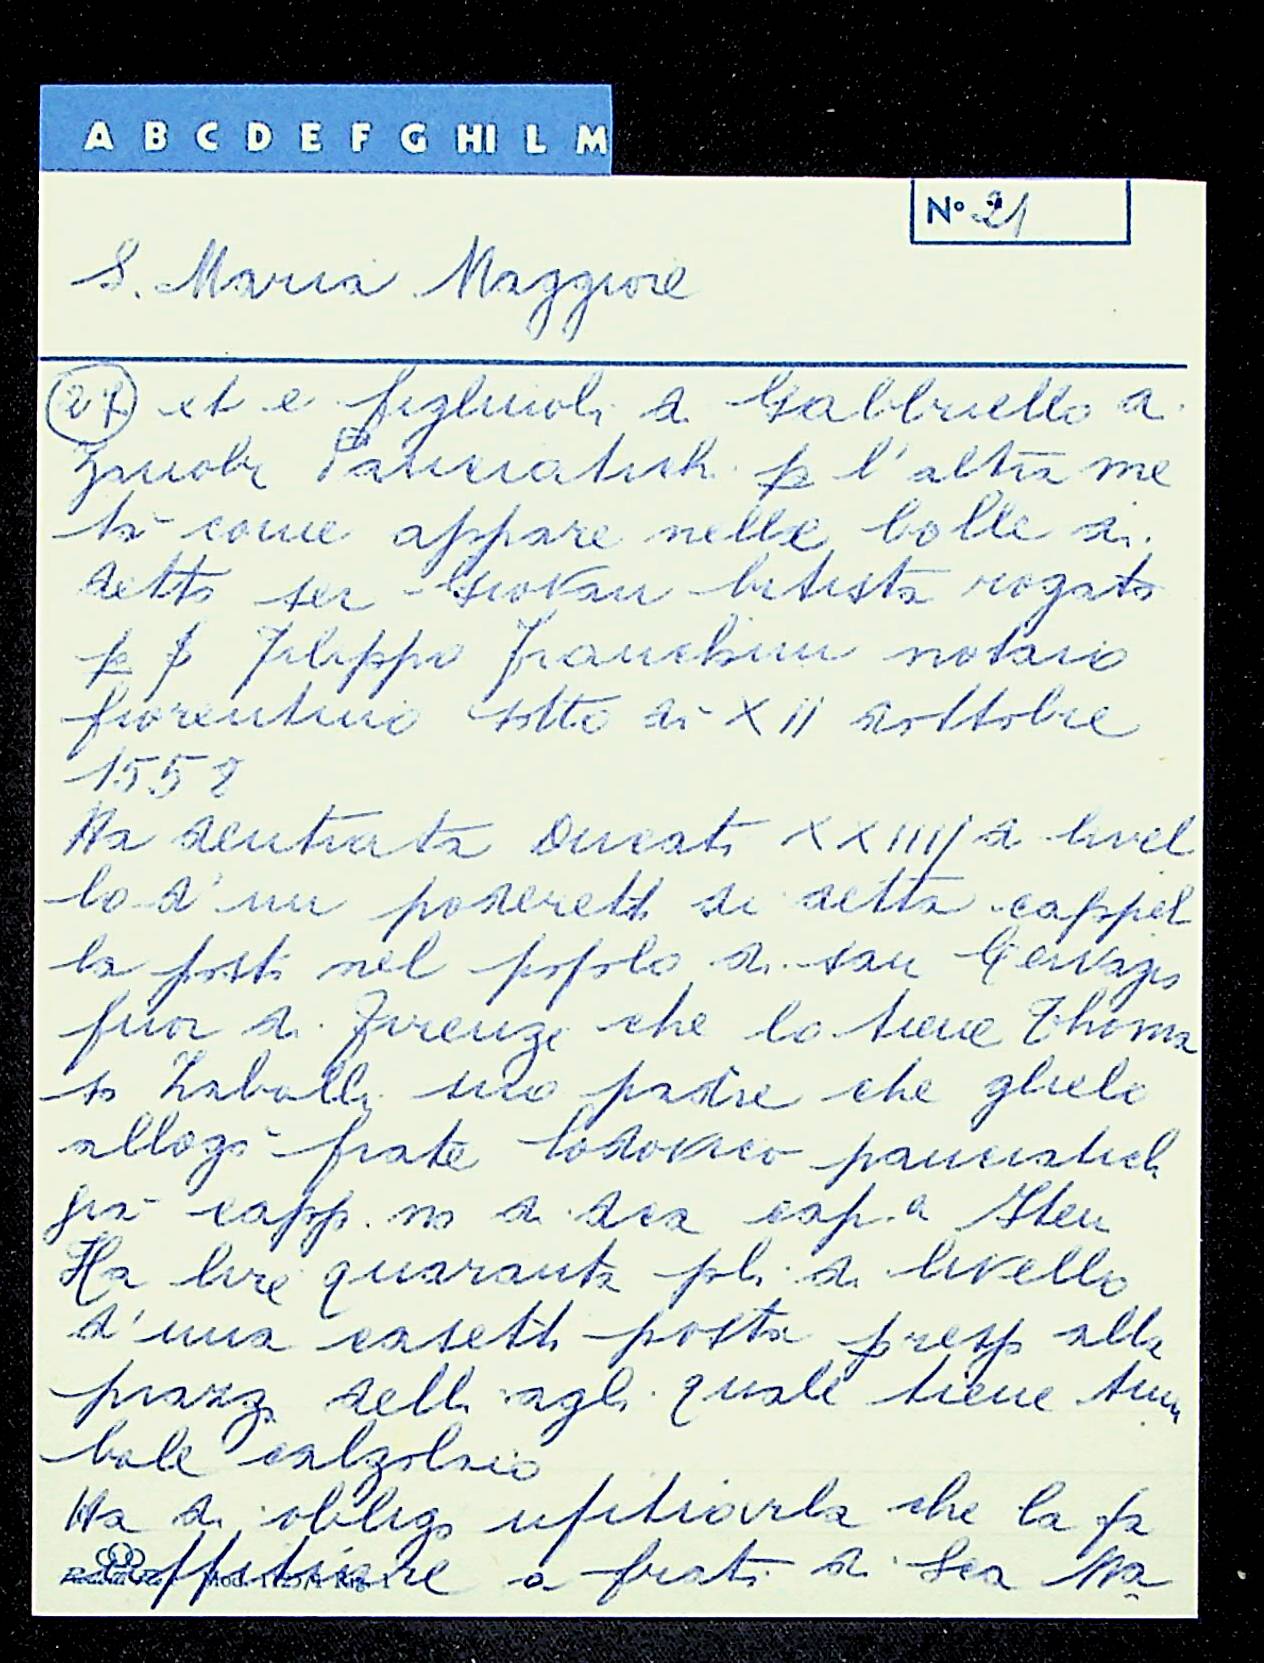 A B C D E F G HI L M
N° 21
S. Maria Maggiore
27 et e figliuoli di Gabbriello di
Zanobi Panciatichi p l'altra me
tà come appare nelle bolle di
detto ser Giovan batista rogato
p Filippo Franchini notaio
fiorentino sotto dì XII dottobre
1558
Ha dentrata Ducati XXIIII di livel
lo d'un poderetto di detta cappel
la posto nel popolo di san Gervazo
fuor di Firenze che lo tiene Thoma
so Zabolli suo padre che gliele
allogò frate lodovico panciatichi
già capp.no di dca cap.a Item
Ha lire quaranta pli di livello
d'una casetta posta presso alla
piazza delli agli quale tiene
bole calzolaio
Ha di obligo ufitiarla che la fa
uffitiare a frati di Sca Ma